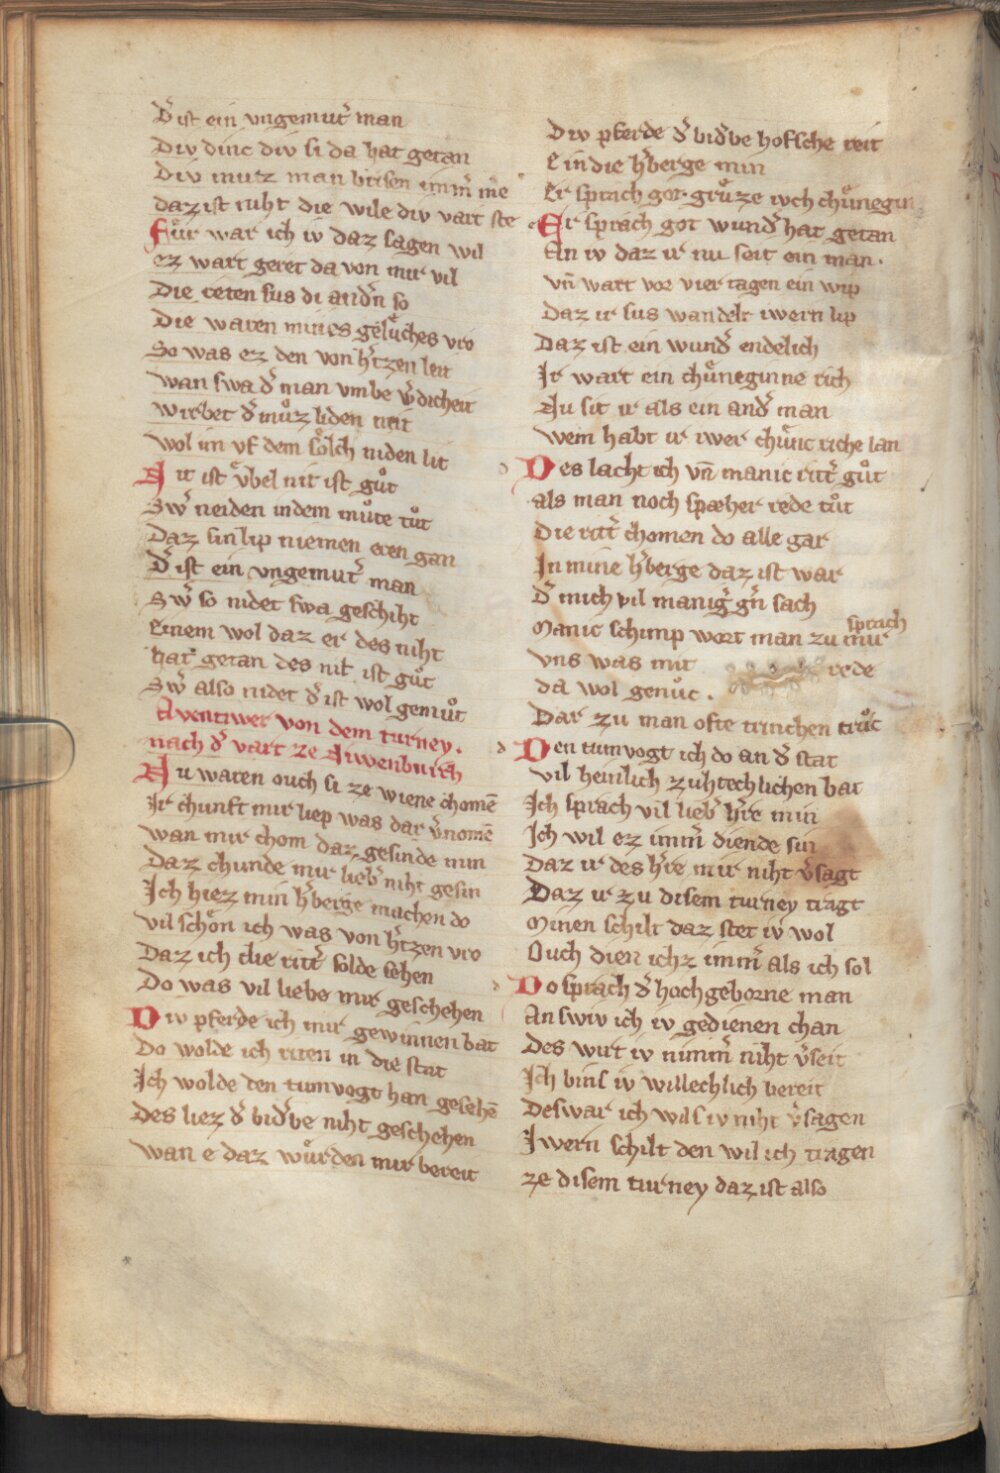 D͛ ist ein vngemut͛ man
Div dinc div si da hat getan
Div muz man brisen imm͛ me
daz ist niht die wile div vart ste
Fuͤr war ich iv daz sagen wil
ez wart geret da von mir vil
Die reten sus di and͛n so
Die waren mines geluͤches vro
So was ez den von h͛tzen leit
wan swa d͛ man vmbe w͛dicheit
wirbet d͛ muͦz liden nit
wol im vf dem soͤlch niden lit
Nit ist vͤbel nit ist guͦt
Sw͛ neiden in dem muͦte tuͦt
Daz sin lip niemen eren gan
D͛ ist ein vngemut͛ man
Sw͛ so nidet swa geschiht
Einem wol daz er des niht
hat getan des nit ist guͦt
Sw͛ also nidet d͛ ist wol gemuͦt
Aventiwer von dem turney.
nach d͛ vart ze Niwenburch
Nu waren ouch si ze wiene chomē
Ir chunft mir liep was dar v͛nomē
wan mir chom daz gesinde min
Daz chunde mir lieb͛ niht gesin
Ich hiez min h͛berge machen do
vil schoͤn ich was von h͛tzen vro
Daz ich die ritt͛ solde sehen
Do was vil liebe mir geschehen
Div pferde ich mir gewinnen bat
Do wolde ich riten in die stat
Ich wolde den tumvogt han gesehē
Des liez d͛ bid͛be niht geschehen
wan e daz wuͤrden mir bereit
Div pferde d͛ bid͛be hofsche reit
E in die h͛berge min
Er sprach got gruͤze ivch chuͤnegin
Er sprach got wund͛ hat getan
An iv daz ir nu seit ein man.
vn̄ wart vor vier tagen ein wip
Daz ir sus wandelt iwern lip
Daz ist ein wund͛ endelich
Ir wart ein chuͤneginne rich
Nu sit ir als ein and͛ man
wem habt ir iwer chuͤnc riche lan
Des lacht ich vn̄ manic ritt͛ guͦt
als man noch spæher rede tuͦt
Die ritt͛ chomen do alle gar
In mine h͛berge daz ist war
D͛ mich vil manig͛ g͛n sach
Manic schimp wort man zu mir sprach
vns was mit rede
da wol genuͦc.
Dar zu man ofte trinchen truͦc
Den tumvogt ich do an d͛ stat
vil heinlich zuhtechlichen bat
Ich sprach vil lieb͛ h͛re min
Ich wil ez imm͛ diende sin
Daz ir des h͛re mir niht v͛sagt
Daz ir zu disem turney tragt
Minen schilt daz stet iv wol
Ouch dien ichz imm͛ als ich sol
Do sprach d͛ hochgeborne man
An swiv ich iv gedienen chan
Des wirt iv nimm͛ niht v͛seit
Ich bins iv willechlich bereit
Deswar ich wils iv niht v͛sagen
Iwern schilt den wil ich tragen
ze disem turney daz ist also